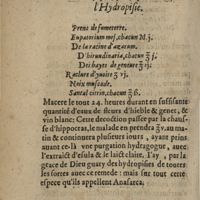 l'Hydropisie.
Prens de fumeterre.
Eupatorium mes, chacun M.j.
De la racine d'azarum.
D'hirundinaria, chacun ℥ j.
Des bayes de genieure ℥ ij.
Racleure d'yuoire ʒ vj.
Noix muscade.
Santal citrin, chacun ℥ ß.
Macere le tout 24. heures durant en suffisante
quantité d'eaux de fleurs d'hieble & genet, &
vin blanc: Cette decoction passée par la chausse
d'hippocras, le malade en prendra ℥ v. au matin
& continuera plusieurs iours, ayant prins
auant ce-là vne purgation hydragogue, auec
l'extraict d'esula & le laict claire. I'ay, par la
grace de Dieu guary des hydropisies de toutes
les sortes auec ce remede: mais sur tout cette
espece qu'ils appellent Anasarca.